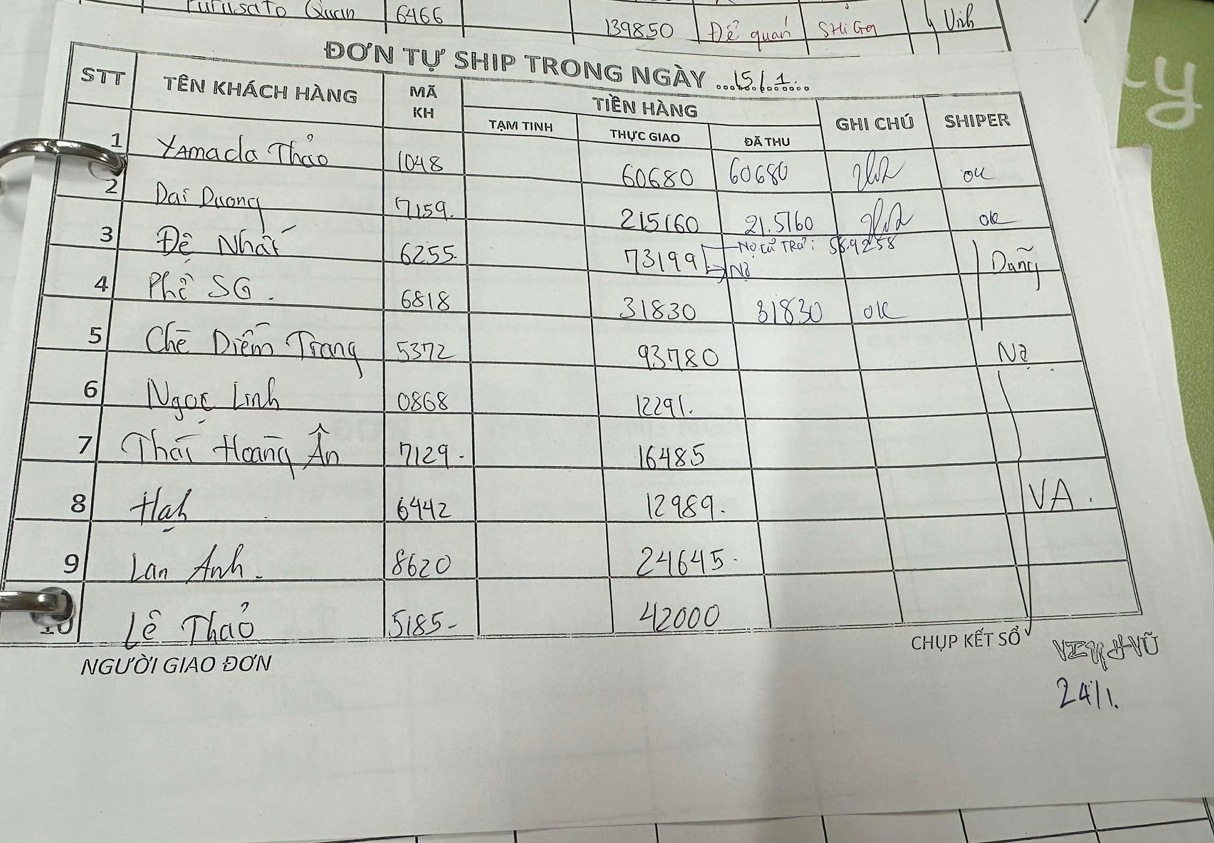 Furusato Quan 6466 139850 Để quán SHiGa Vinh
ĐƠN TỰ SHIP TRONG NGÀY ...15/1...
STT TÊN KHÁCH HÀNG MÃ KH TIỀN HÀNG GHI CHÚ SHIPER
TẠM TINH THỰC GIAO ĐÃ THU
1 Yamada Thảo 1048 60680 60680 ok
2 Dai Duong 7159. 215160 21.5160 ok
3 Đệ Nhất 6255. 73199 Nợ cũ TRả: 58.9258 Dũng
Nợ
4 Phê SG. 6818 31830 31830 ok
5 Chè Diễm Trang 5372 93780 Nợ
6 Ngọc Linh 0868 12291.
7 Thái Hoàng Ân 7129. 16485
8 Hạh 6442 12989. VA.
9 Lan Anh. 8620 24645.
10 Lê Thảo 5185- 42000
NGƯỜI GIAO ĐƠN CHỤP KẾT SỔ
VŨ
24/1.